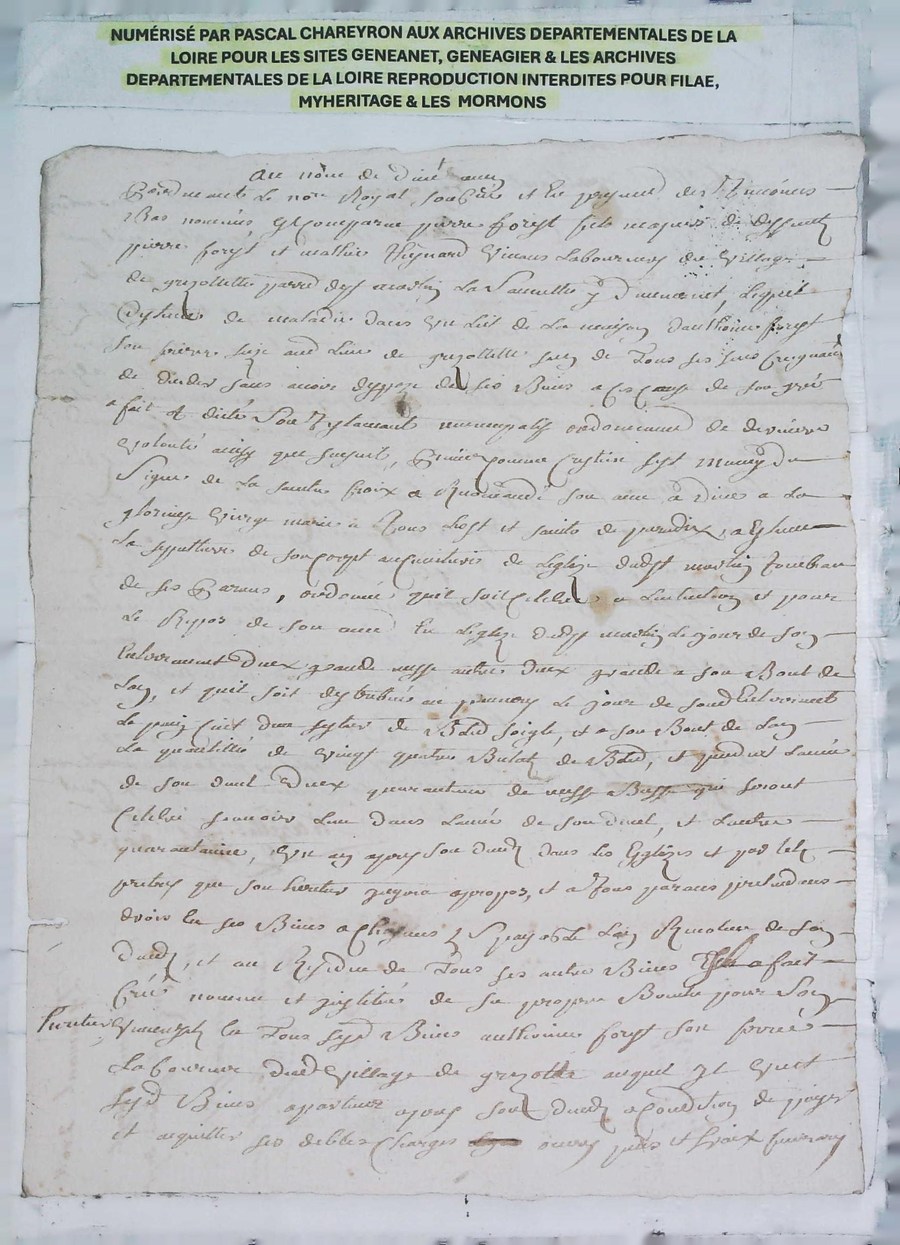 NUMÉRISÉ PAR PASCAL CHAREYRON AUX ARCHIVES DEPARTEMENTALES DE LA
LOIRE POUR LES SITES GENEANET, GENEAGIER & LES ARCHIVES
DEPARTEMENTALES DE LA LOIRE REPRODUCTION INTERDITES POUR FILAE,
MYHERITAGE & LES MORMONS
Au nom de Dieu amen
Pardevant Le no.re Royal soubsné et En presence des Tmoings
Bas nommés pierre forest fils de deffunt
pierre forest et mathie vivans Laboureurs du village
de parr. de st martin La Lequel
de maladie dans un Lit de La maison d'anthoine forest
son frere aud Lieu de de Tous ses sens
de deceder sans avoir dispozé de ses Biens a Ces Cause de son gré
a fait et dicté son Testament nuncupatif de derniere
volonté ainsy que sensuit, pmier comme sest muny du
Signe de La sainte Croix a Recomandé son ame a Dieu a La
glorieuse vierge marie a Tous Les st et saintes de paradix, a Esleu
La sepulture de son corps au de Leglize dudst martin Tombeau
de ses parans, ordonne quil soit Celebré a Lintention et pour
Le Repos de son ame En Leglize dudst martin Le jour de son
Enterrement Deux grande messe autres Deux grande a son Bout de
Lan, et quil soit destribués au pauvres Le jour de sond Enterrement
Le pain Cuit dun seytier de Bled seigle, et a son Bout de Lan
La quantitté de vingt quatre de Bled, et pendant Lannée
de son deuil Deux quarantaine de messe Basse qui seront
Celebré scavoir Lune dans Lannée de son deuil, et Lautre
quarantaine, un an apres son dans les Eglizes et par tels
prebtres que son heritier jugera apropos, et a Tous parans pretendans
droit En ses Biens a Chacuns Lan Revolue de son
, et au Residue de Tous ses autre Biens a fait
Créé nommé et justitué de sa propre Bouche pour son
heritier universel En Tous sesd Biens anthoine forest son frere
Laboureur dud village de auquel Il veut
sesd Biens apartenir apres sond a Condition de payer
et aquitter ses debtes Charges et fraix funerary